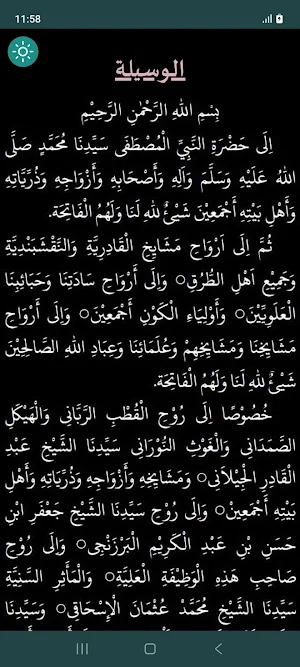 11:58
الوسيلة
بِسْمِ اللهِ الرَّحْمٰنِ الرَّحِيْمِ
اِلَى حَضْرَةِ النَّبِيِّ الْمُصْطَفَى سَيِّدِنَا مُحَمَّدٍ صَلَّى
اللهُ عَلَيْهِ وَسَلَّمَ وَآلِهِ وَأَصْحَابِهِ وَأَزْوَاجِهِ وَذُرِّيَّاتِهِ
وَأَهْلِ بَيْتِهِ أَجْمَعِيْنَ شَيْئٌ لِلّٰهِ لَنَا وَلَهُمُ الْفَاتِحَة.
ثُمَّ اِلَى اَرْوَاحِ مَشَايِخِ الْقَادِرِيَّةِ وَالنَّقْشَبَنْدِيَّةِ
وَجَمِيْعِ اَهْلِ الطُّرُقِ○ وَاِلَى أَرْوَاحِ سَادَتِنَا وَحَبَائِبِنَا
الْعَلَوِيِّيْنَ○ وَأَوْلِيَاءِ الْكَوْنِ أَجْمَعِيْنَ○ وَاِلَى أَرْوَاحِ
مَشَايِخِنَا وَمَشَايِخِهِمْ وَعُلَمَائِنَا وَعِبَادِ اللهِ الصَّالِحِيْنَ
شَيْئٌ لِلّٰهِ لَنَا وَلَهُمُ الْفَاتِحَة.
خُصُوْصًا اِلَى رُوْحِ الْقُطْبِ الرَّبَّانِى وَالْهَيْكَلِ
الصَّمَدَانِى وَالْغَوْثِ النُّوْرَانِى سَيِّدِنَا الشَّيْخِ عَبْدِ
الْقَادِرِ الْجِيْلَانِى○ وَمَشَايِخِهِ وَأَزْوَاجِهِ وَذُرِّيَّاتِهِ وَأَهْلِ
بَيْتِهِ أَجْمَعِيْنَ○ وَاِلَى رُوْحِ سَيِّدِنَا الشَّيْخِ جَعْفَرِ ابْنِ
حَسَنِ بْنِ عَبْدِ الْكَرِيْمِ الْبَرْزَنْجِى○ وَاِلَى رُوْحِ
صَاحِبِ هَذِهِ الْوَظِيْفَةِ الْعَلِيَّةِ○ وَالْمَأْثِرِ السَّنِيَّةِ
سَيِّدِنَا الشَّيْخِ مُحَمَّد عُثْمَانَ الْإِسْحَاقِى○ وَسَيِّدِنَا